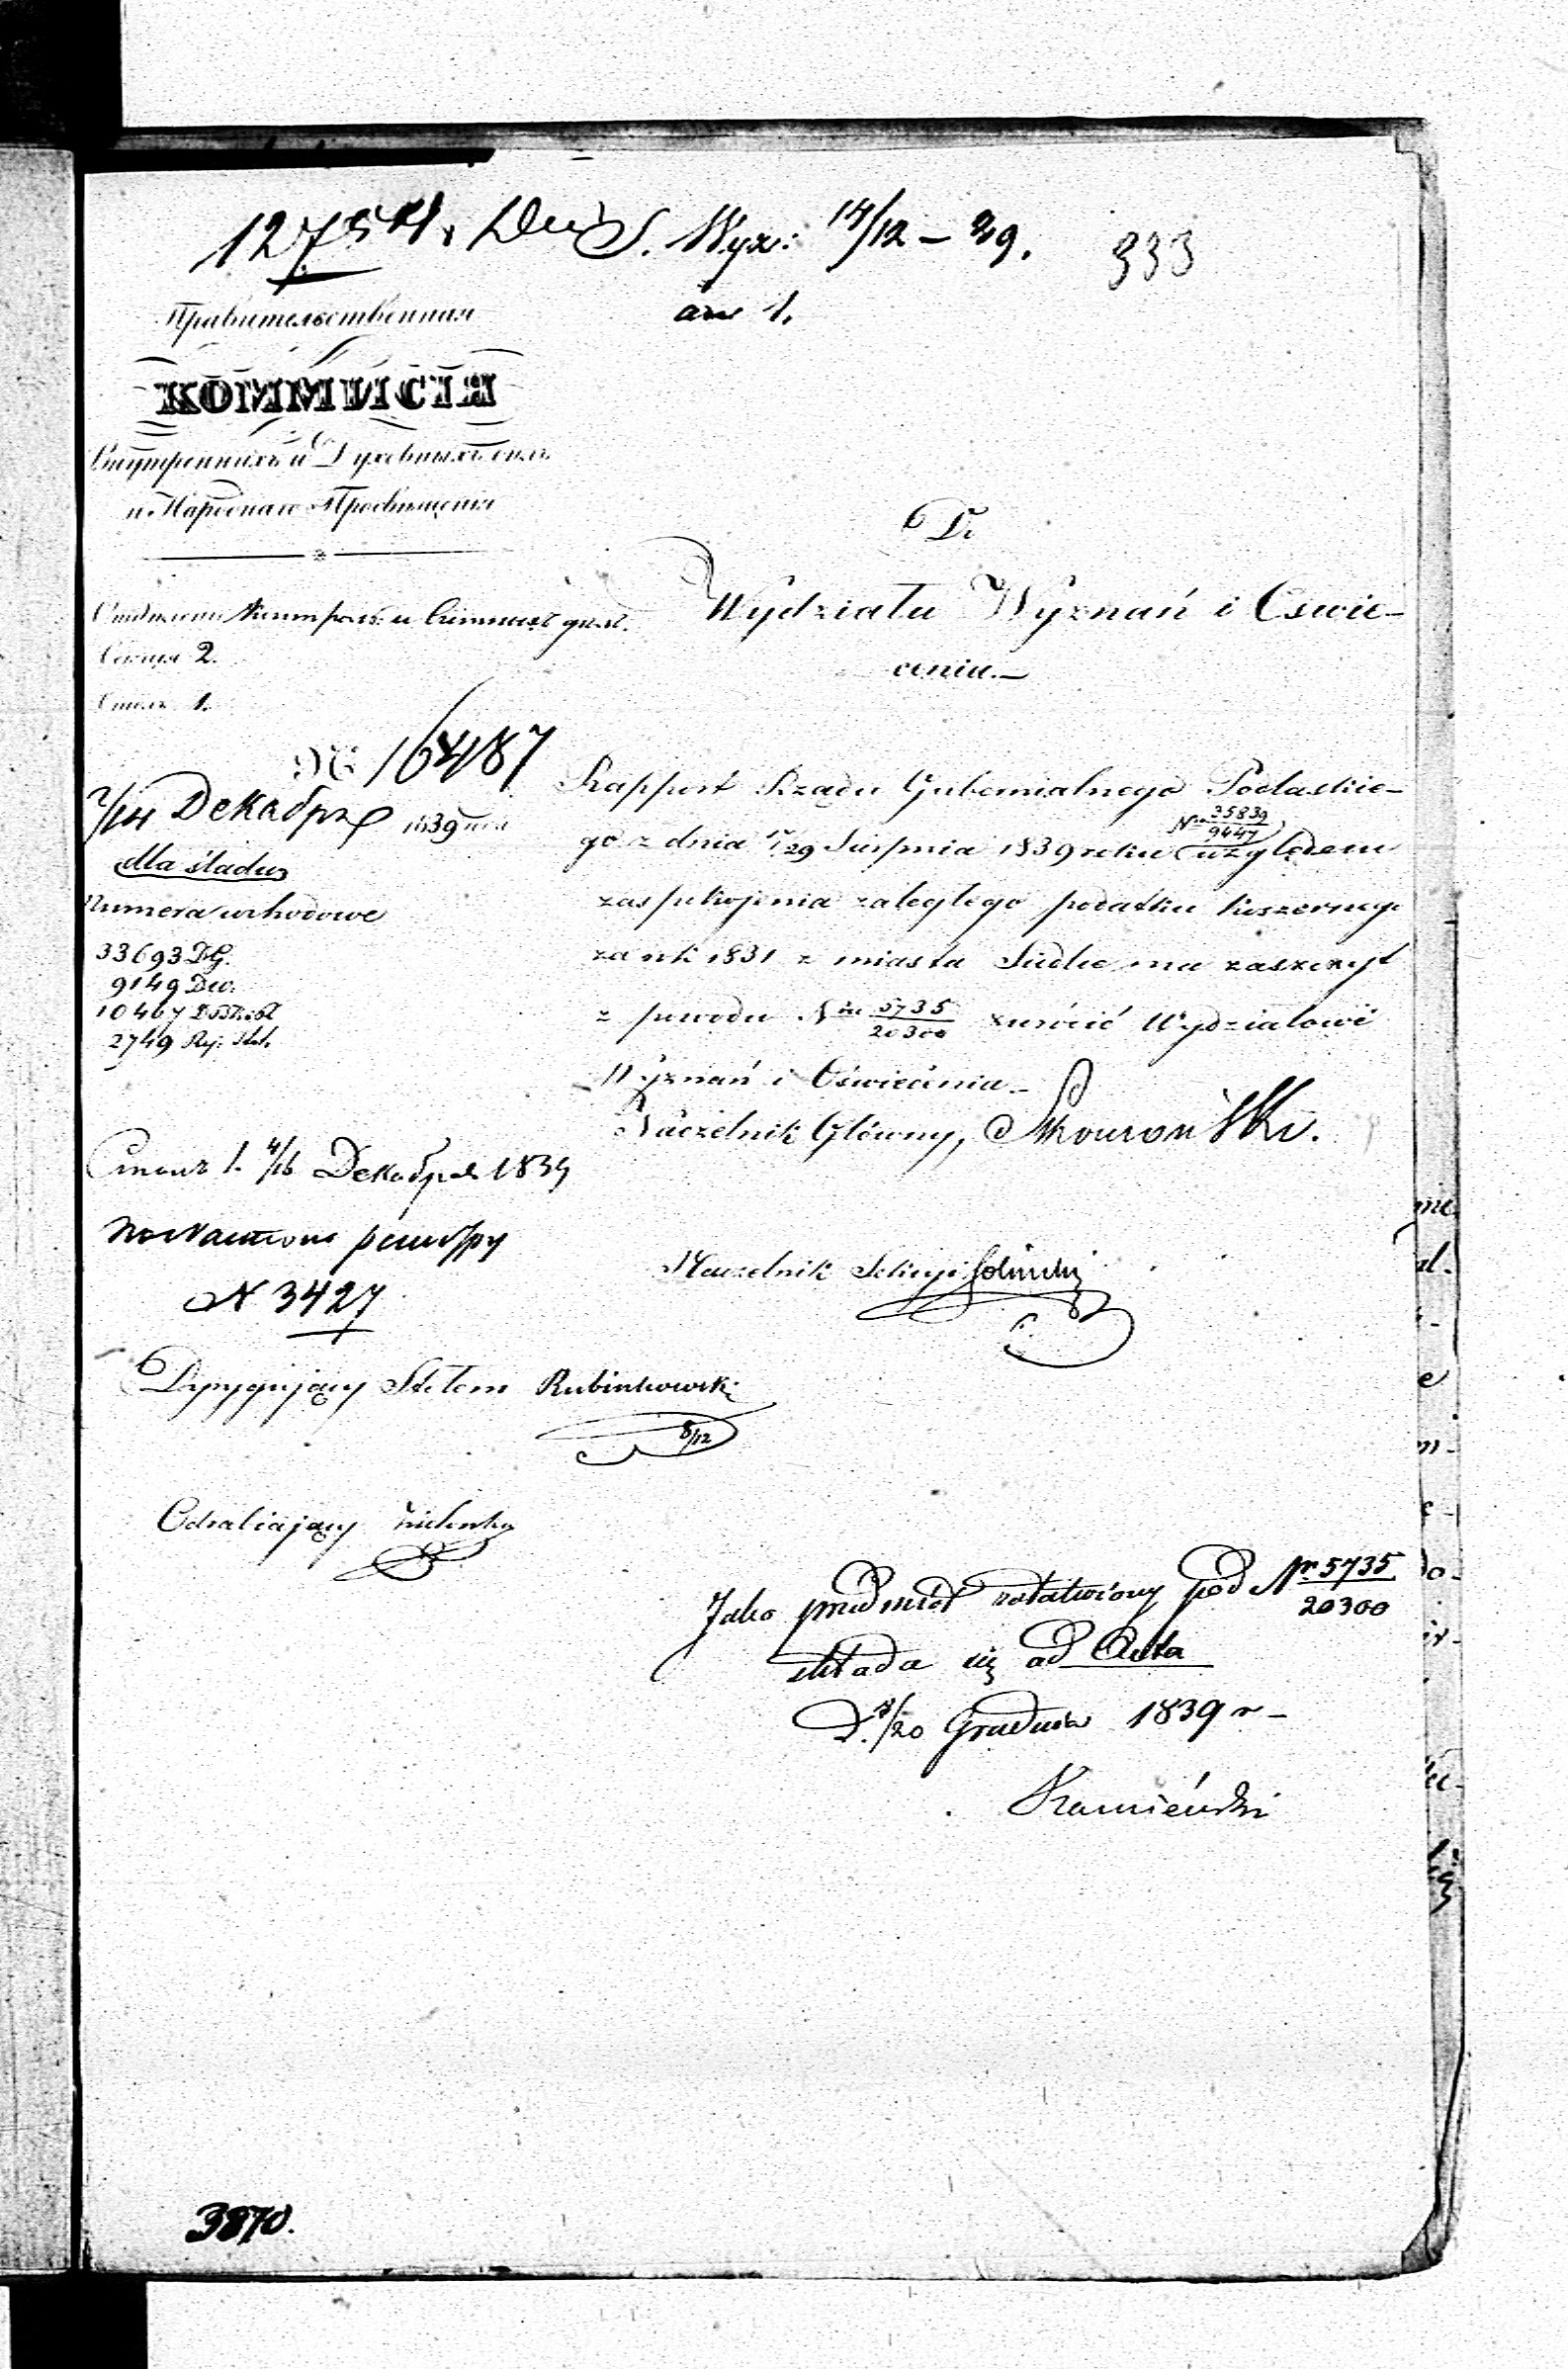 12754. Dw S. Wyz: 14/12 – 39.
333
ann 1.
Правительственная
КОММИСІЯ
Внутреннихъ и Духовныхъ дѣлъ
и Народнаго Просвѣщенія
Секція 2.
Столъ 1.
№ 16487
2/14 Декабря 1839 года
dla śladu
Numera wchodowe
33693 DG.
9149 Dw.
10467
2749
Столъ 1. 4/16 Декабря 1839
N 3427
Dyrygujący Stołem Rubinkowski
8/12
Odrabiający
Do
Wydziału Wyznań i Oświe-
cenia.–
Rapport Rządu Gubernialnego Podlaskie-
go z dnia 17/29 Sierpnia 1839 roku Nro 25839/9447 względem
zaspokojenia zaległego podatku koszernego
za rok 1831 z miasta Siedlec ma zaszczyt
z powodu Nru 5735/20300 zwrócić Wydziałowi
Wyznań i Oświecenia–
Naczelnik Główny, Skowroński.
Naczelnik Sekcyi
Jako przedmiot załatwiony pod Nr 5735/20300
składa się ad Acta
D. 8/20 Grudnia 1839 r–
Kamieński
3870.